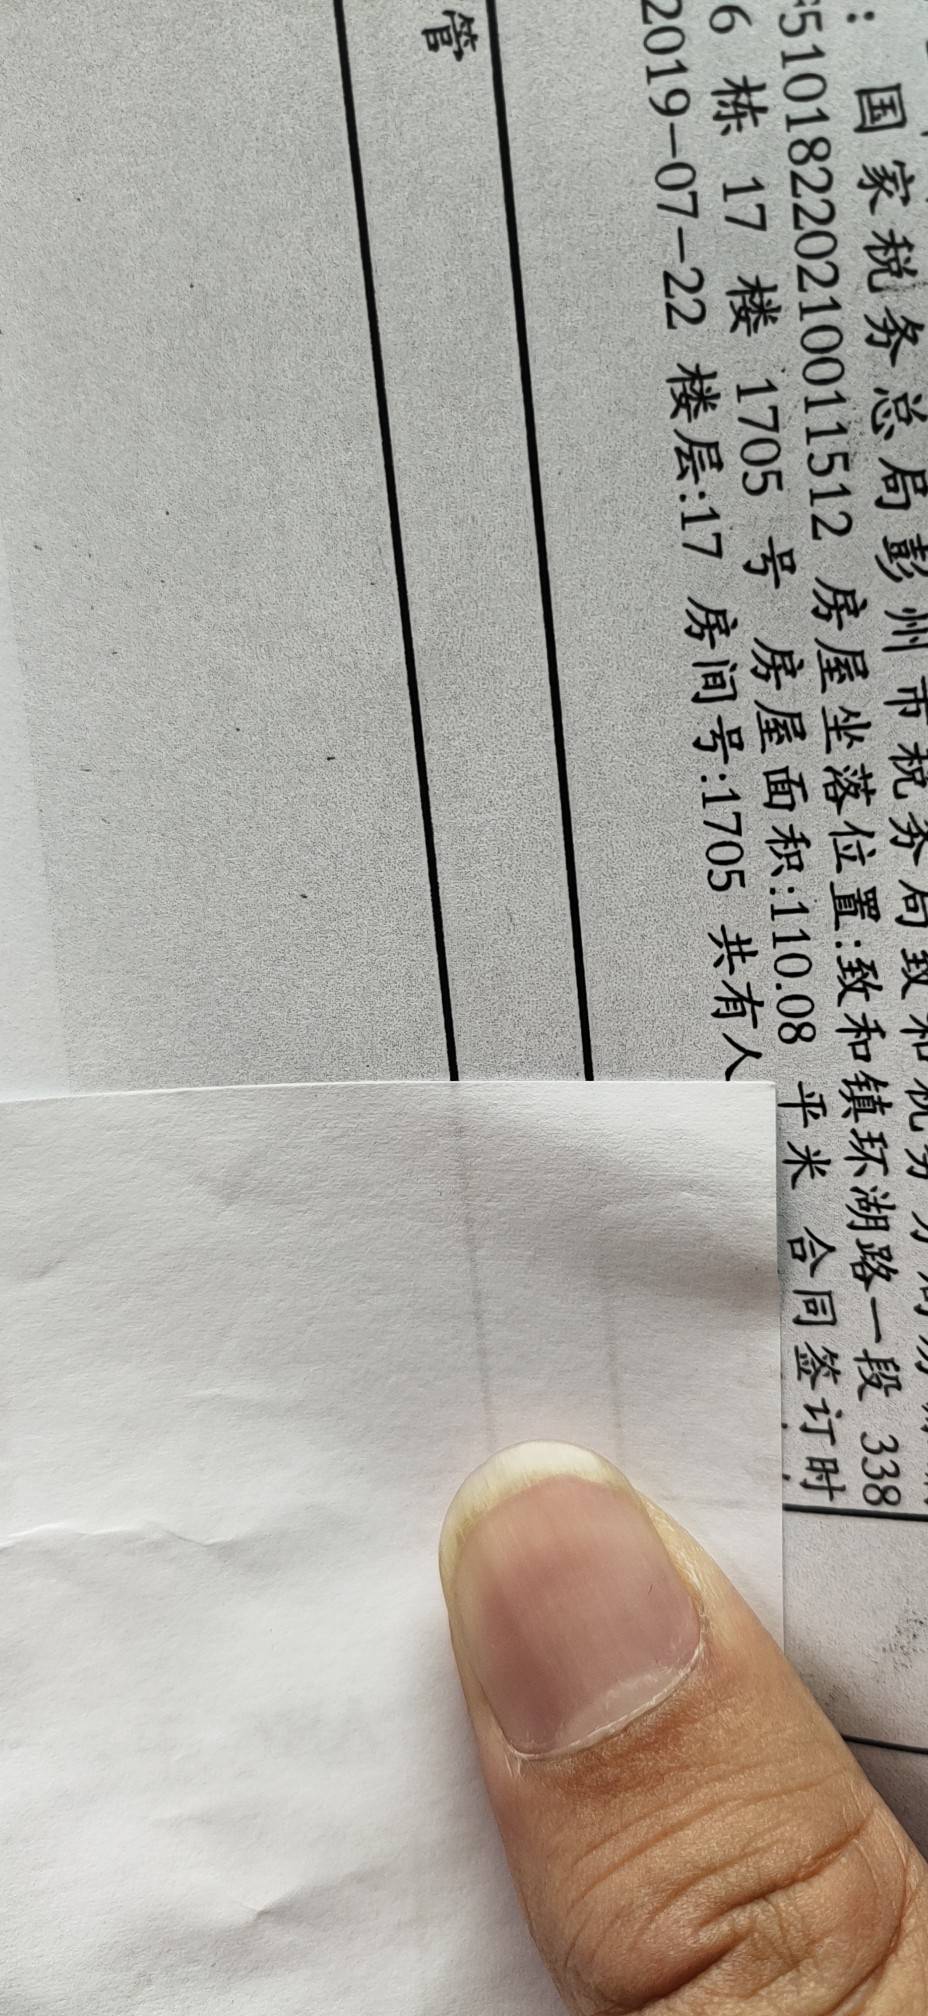 : 国家税务总局彭州市税务局致和税务
:510182220210011512 房屋坐落位置:致和镇环湖路一段 338
6 栋 17 楼 1705 号 房屋面积:110.08 平米 合同签订时
2019-07-22 楼层:17 房间号:1705 共有人
管